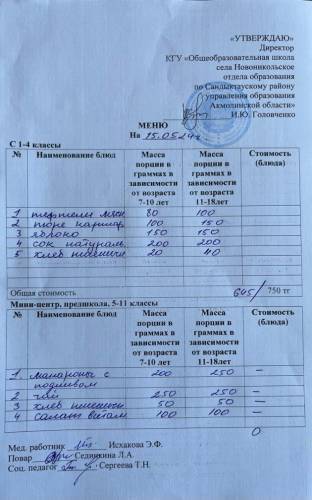 «УТВЕРЖДАЮ»
Директор
КГУ «Общеобразовательная школа
села Новоникольское
отдела образования
по Сандыктаускому району
управления образования
Акмолинской области»
И.Ю. Головченко
МЕНЮ
На 15.05.24г.
С 1-4 классы
№ Наименование блюд Масса порции в граммах в зависимости от возраста 7-10 лет Масса порции в граммах в зависимости от возраста 11-18лет Стоимость (блюда)
1 тефтели мясн 80 100
2 пюре 100 150
3 яблоко 150 150
4 сок натураль. 200 200
5 хлеб пшеничн 20 40
Общая стоимость 645/ 750 тг
Мини-центр, предшкола, 5-11 классы
№ Наименование блюд Масса порции в граммах в зависимости от возраста 7-10 лет Масса порции в граммах в зависимости от возраста 11-18лет Стоимость (блюда)
1. макароны с 200 250 –
подливом
2 чай 250 250 –
3 хлеб пшеничн 50 50 –
4 салат витам 100 100 –
0
Мед. работник Исхакова Э.Ф.
Повар Сединкина Л.А.
Соц. педагог Сергеева Т.Н.